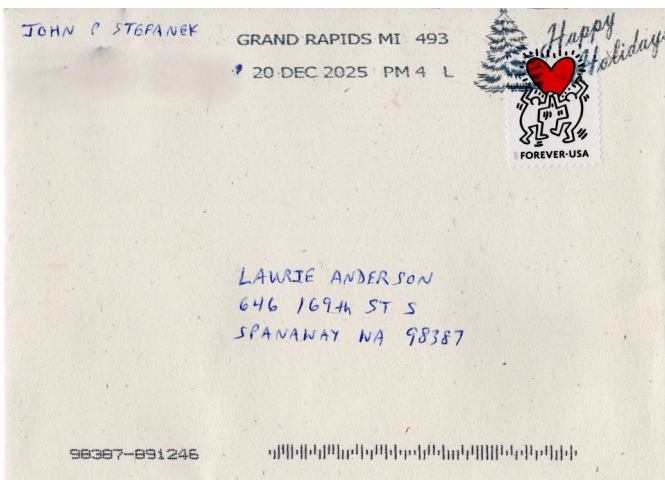 JOHN P STEPANEK
GRAND RAPIDS MI 493
20 DEC 2025 PM 4 L
Happy
Holidays
FOREVER·USA
LAURIE ANDERSON
646 169th ST S
SPANAWAY WA 98387
98387-891246